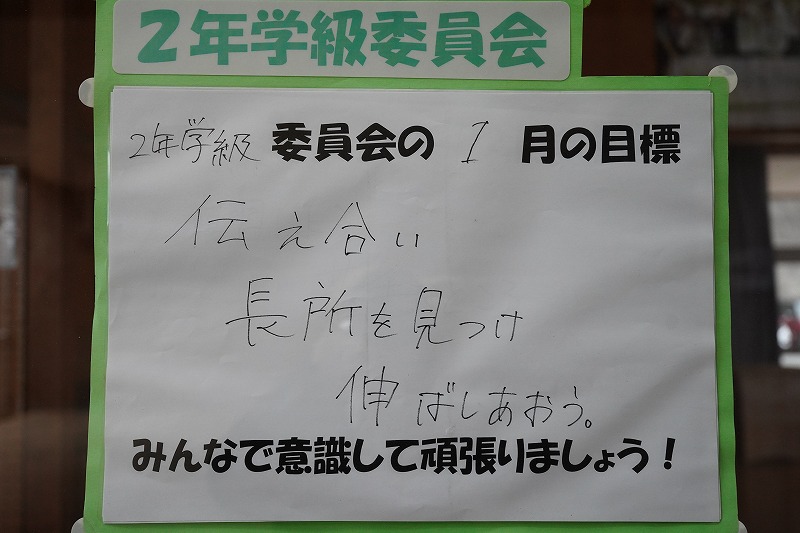 ２年学級委員会
2年学級 委員会の 1 月の目標
伝え合い
長所を見つけ
伸ばしあおう。
みんなで意識して頑張りましょう！